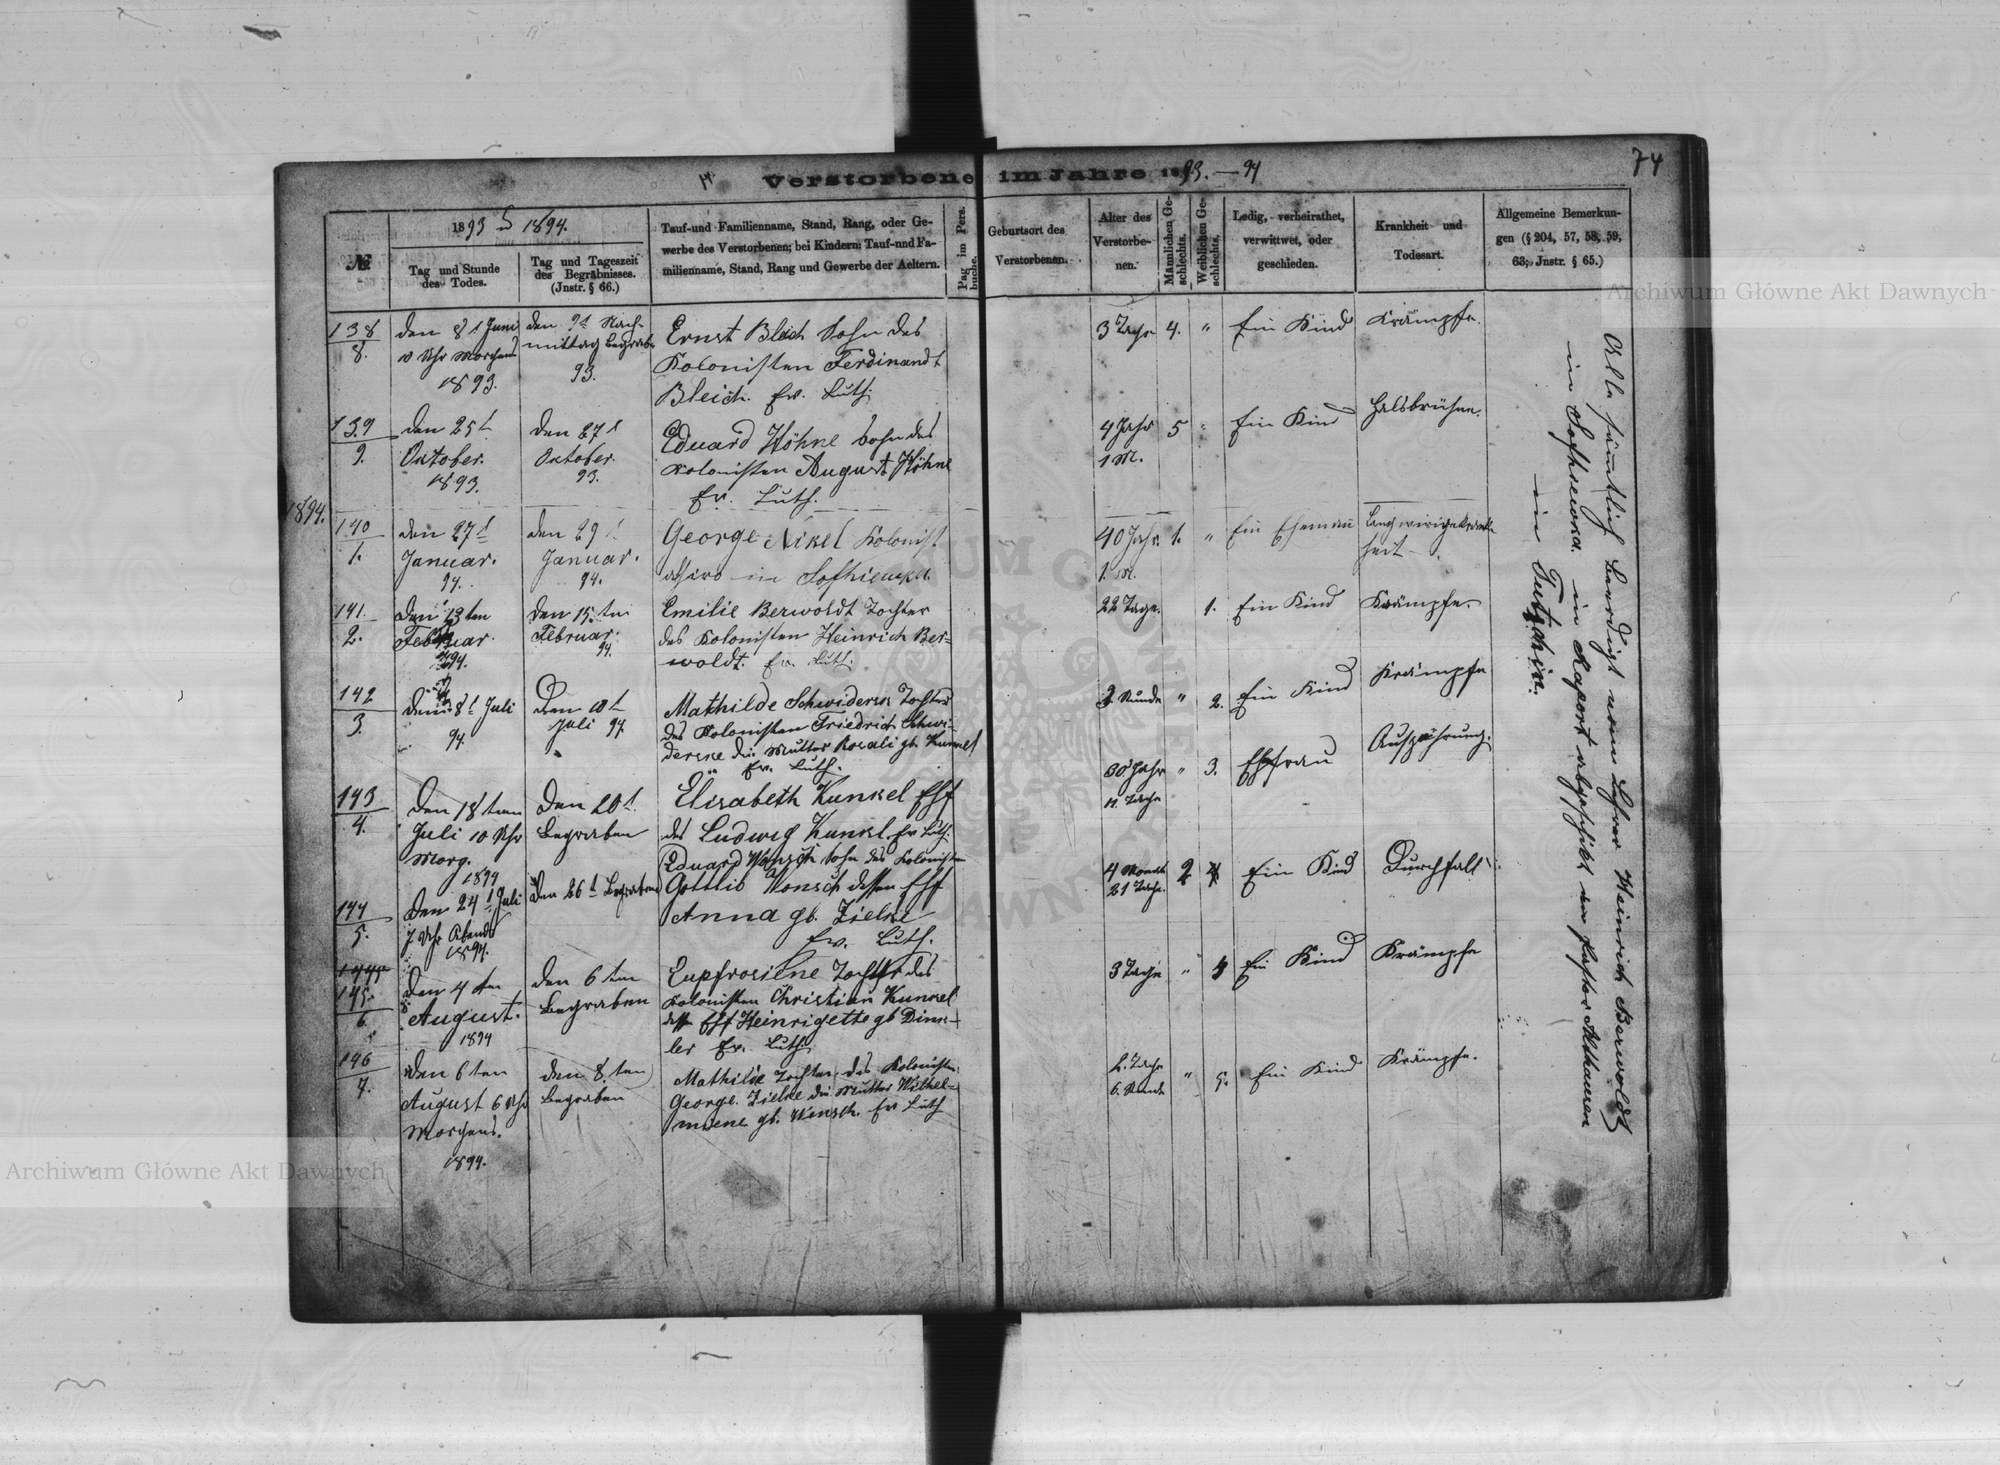 74
Verstorbene im Jahre 1893. — 94
№
1893 1894.
Tag und Stunde
des Todes.
Tag und Tageszeit
des Begräbnisses.
(Jnstr. § 66.)
Tauf-und Familienname, Stand, Rang, oder Ge-
werbe des Verstorbenen; bei Kindern: Tauf-und Fa-
milienname, Stand, Rang und Gewerbe der Aeltern.
Pag im Pers.
buche.
Geburtsort des
Verstorbenen.
Alter des
Verstorbe-
nen.
Männlichen Ge-
schlechts.
Weiblichen Ge-
schlechts.
Ledig, verheirathet,
verwittwet, oder
geschieden.
Krankheit und
Todesart.
Allgemeine Bemerkun-
gen (§ 204, 57, 58, 59,
63; Jnstr. § 65.)
138
8.
den 8t Juni
10 Uhr Morgens
1893.
den 9t Nach-
mittag begraben
93.
Ernst Bleich Sohn des
Kolonisten Ferdinandt
Bleich. Ev. Luth.
3 Tage
4.
"
Ein Kind
Krämpfe.
139
9.
den 25t
Oktober.
1893.
den 27t
Oktober.
93.
Eduard Höhne Sohn des
Kolonisten August Höhne
Ev. Luth.
4 Jahr
1 M.
5
"
Ein Kind
Halsbrühne.
1894.
140
1.
den 27t
Januar.
94.
den 29t
Januar.
94.
George Nikel Kolonist
in Sofhiewka
40 Jahr
1. M.
1.
"
Ein Eheman
Langwirigekrank-
heit
141.
2.
Den 13ten
Februar.
94.
Den 15.ten
Februar.
94.
Emilie Berwoldt Tochter
des Kolonisten Heinrich Ber-
woldt. Ev. Luth.
22 Tage.
1.
Ein Kind
Krämpfe.
142
3.
Den 8t Juli
94.
Den 10t
Juli 94
Mathilde Schwiderske Tochter
des Kolonisten Friedrich Schwi-
derske die Mutter Rosali gb. Kunkel
Ev. Luth.
Stunde
"
2.
Ein Kind
Krämpfe
143
4.
Den 18ten
Juli 10 Uhr
Morg.
1894
Den 20t.
Begraben
Elisabeth Kunkel Ehf
des Ludwig Kunkel Ev Luth.
30 Jahr
11. Tage
"
3.
Ehfrau
Auszährung.
144
5.
Den 24t Juli
7 Uhr Abends
1894.
Den 26t Begraben
Eduard Wonsch Sohn des Kolonisten
Gottlib Wonsch dessen Ehf
Anna gb. Zielke
Ev. Luth.
4 Monath
21 Tage.
2
Ein Kind
Durchfall
145
6.
Den 4ten
August.
1894
Den 6ten
Begraben
Eupfrosiene Tochter des
Kolonisten Christian Kunkel
dessen Ehf Heinrigette gb Dim-
ler Ev. Luth
3 Tage
"
4
Ein Kind
Krämpfe
146
7.
den 6ten
August 6 Uhr
Morgens.
1894.
den 8.ten
Begraben
Mathilde Tochter des Kolonisten
George Zielke die Mutter Wilhel-
miene gb. Wensch. Ev Luth
2. Tage
6. Stunde
"
5.
Ein Kind
Krämpfe.
Alle sämtlich beerdigt vom Lehrer Heinrich Berwoldt
in Sofhiewka. in Raport abgeschikt an Pastor Althausen
in Tutschin.
Archiwum Główne Akt Dawnych
Archiwum Główne Akt Dawnych